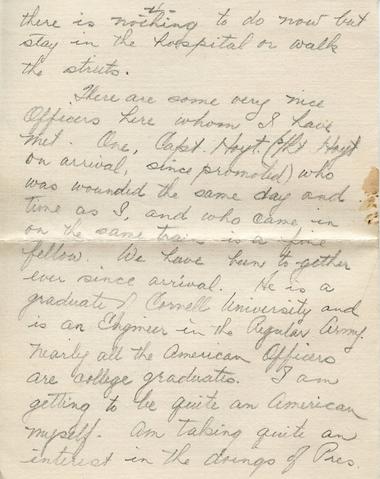 there is nothing to do now but
stay in the hospital or walk
the struts.
There are some very nice
Officers here whom I have
met. One, Capt. Hoyt (1st Hoyt
on arrival, since promoted) who
was wounded the same day and
time as I, and who came in
on the same train is a fine
fellow. We have been to-gether
ever since arrival. He is a
graduate of Cornell University and
is an Engineer in the Regular Army.
Nearly all the American Officers
are college graduates. I am
getting to be quite an American
myself. Am taking quite an
interest in the doings of Pres.